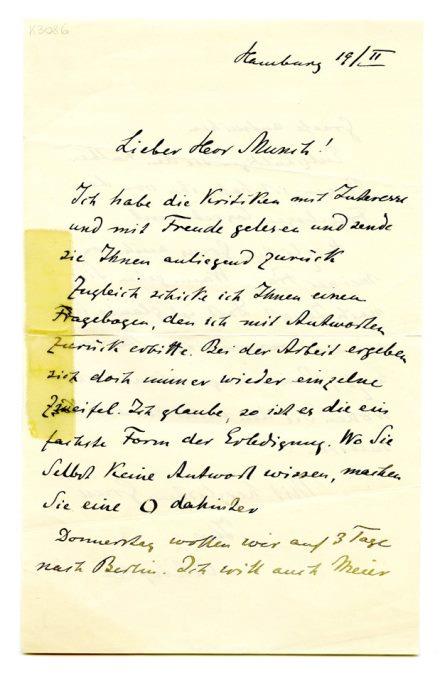 K3086
Hamburg 19/II
Lieber Herr Munch!
Ich habe die Kritiken mit Interesse
und mit Freude gelesen und sende
sie Ihnen anliegend zurück
Zugleich schicke ich Ihnen einen
Fragebogen, den ich mit Antworten
zurück erbitte. Bei der Arbeit ergeben
sich doch immer wieder einzelne
Zweifel. Ich glaube, so ist es die ein
fachste Form der Erledigung. Wo Sie
Selbst keine Antwort wissen, machen
Sie eine O dahinter
Donnerstag wollen wir auf 3 Tage
nach Berlin. Ich will auch Meier